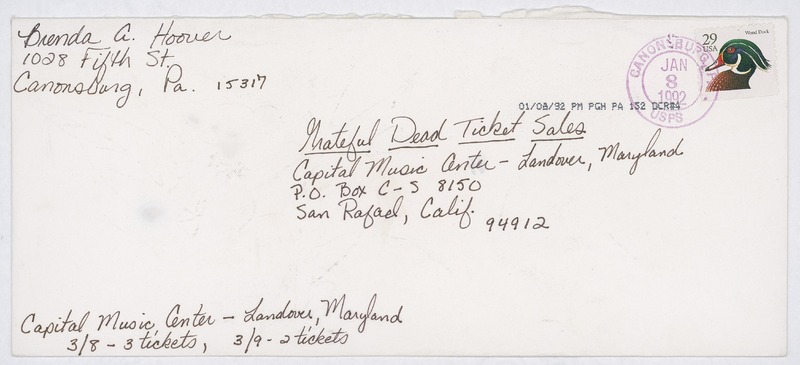 Brenda A. Hoover
1028 Fifth St.
Canonsburg, Pa. 15317
29
USA
Wood Duck
CANONSBURG
JAN
8
1992
USPS
01/08/92 PM PGH PA 152 BCR#4
Grateful Dead Ticket Sales
Capital Music Center - Landover, Maryland
P.O. Box C-S 8150
San Rafael, Calif.
94912
Capital Music Center - Landover, Maryland
3/8 - 3 tickets, 3/9 - 2 tickets